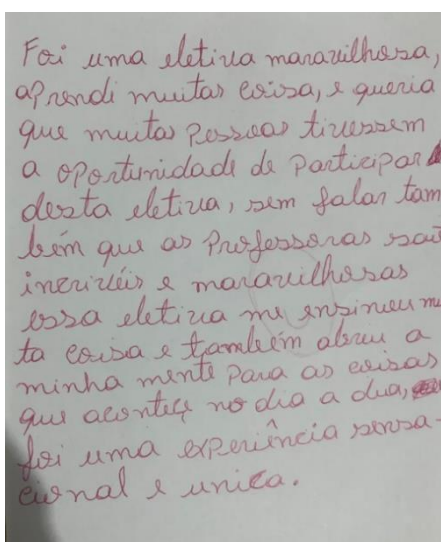 Foi uma eletiva maravilhosa,
aprendi muitas coisa, e queria
que muitas pessoas tivessem
a oportunidade de participar
desta eletiva, sem falar tam
bém que as Professoras saõ
incrivéis e maravilhosas
essa eletiva me ensineu mu
ta coisa e também abreu a
minha mente para as coisas
que acontece no dia a dia,
foi uma experiência sensa-
cional e unica.